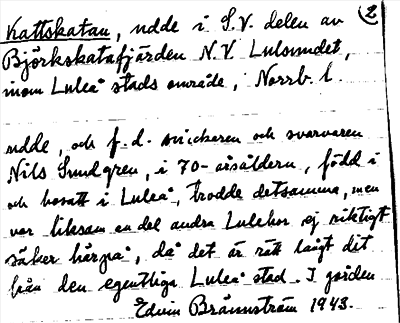 2
Kattskatan, udde i S.V. delen av
Björkskatafjärden N.V. Lulsundet,
inom Luleå stads område, Norrb. l.
udde, och f.d. snickaren och svarvaren
Nils Sundgren, i 70-årsåldern, född i
och bosatt i Luleå, trodde detsamma, men
var liksom en del andra Lulebor ej riktigt
säker härpå, då det är rätt långt dit
från den egentliga Luleå stad. I gården
Edvin Brännström 1943.